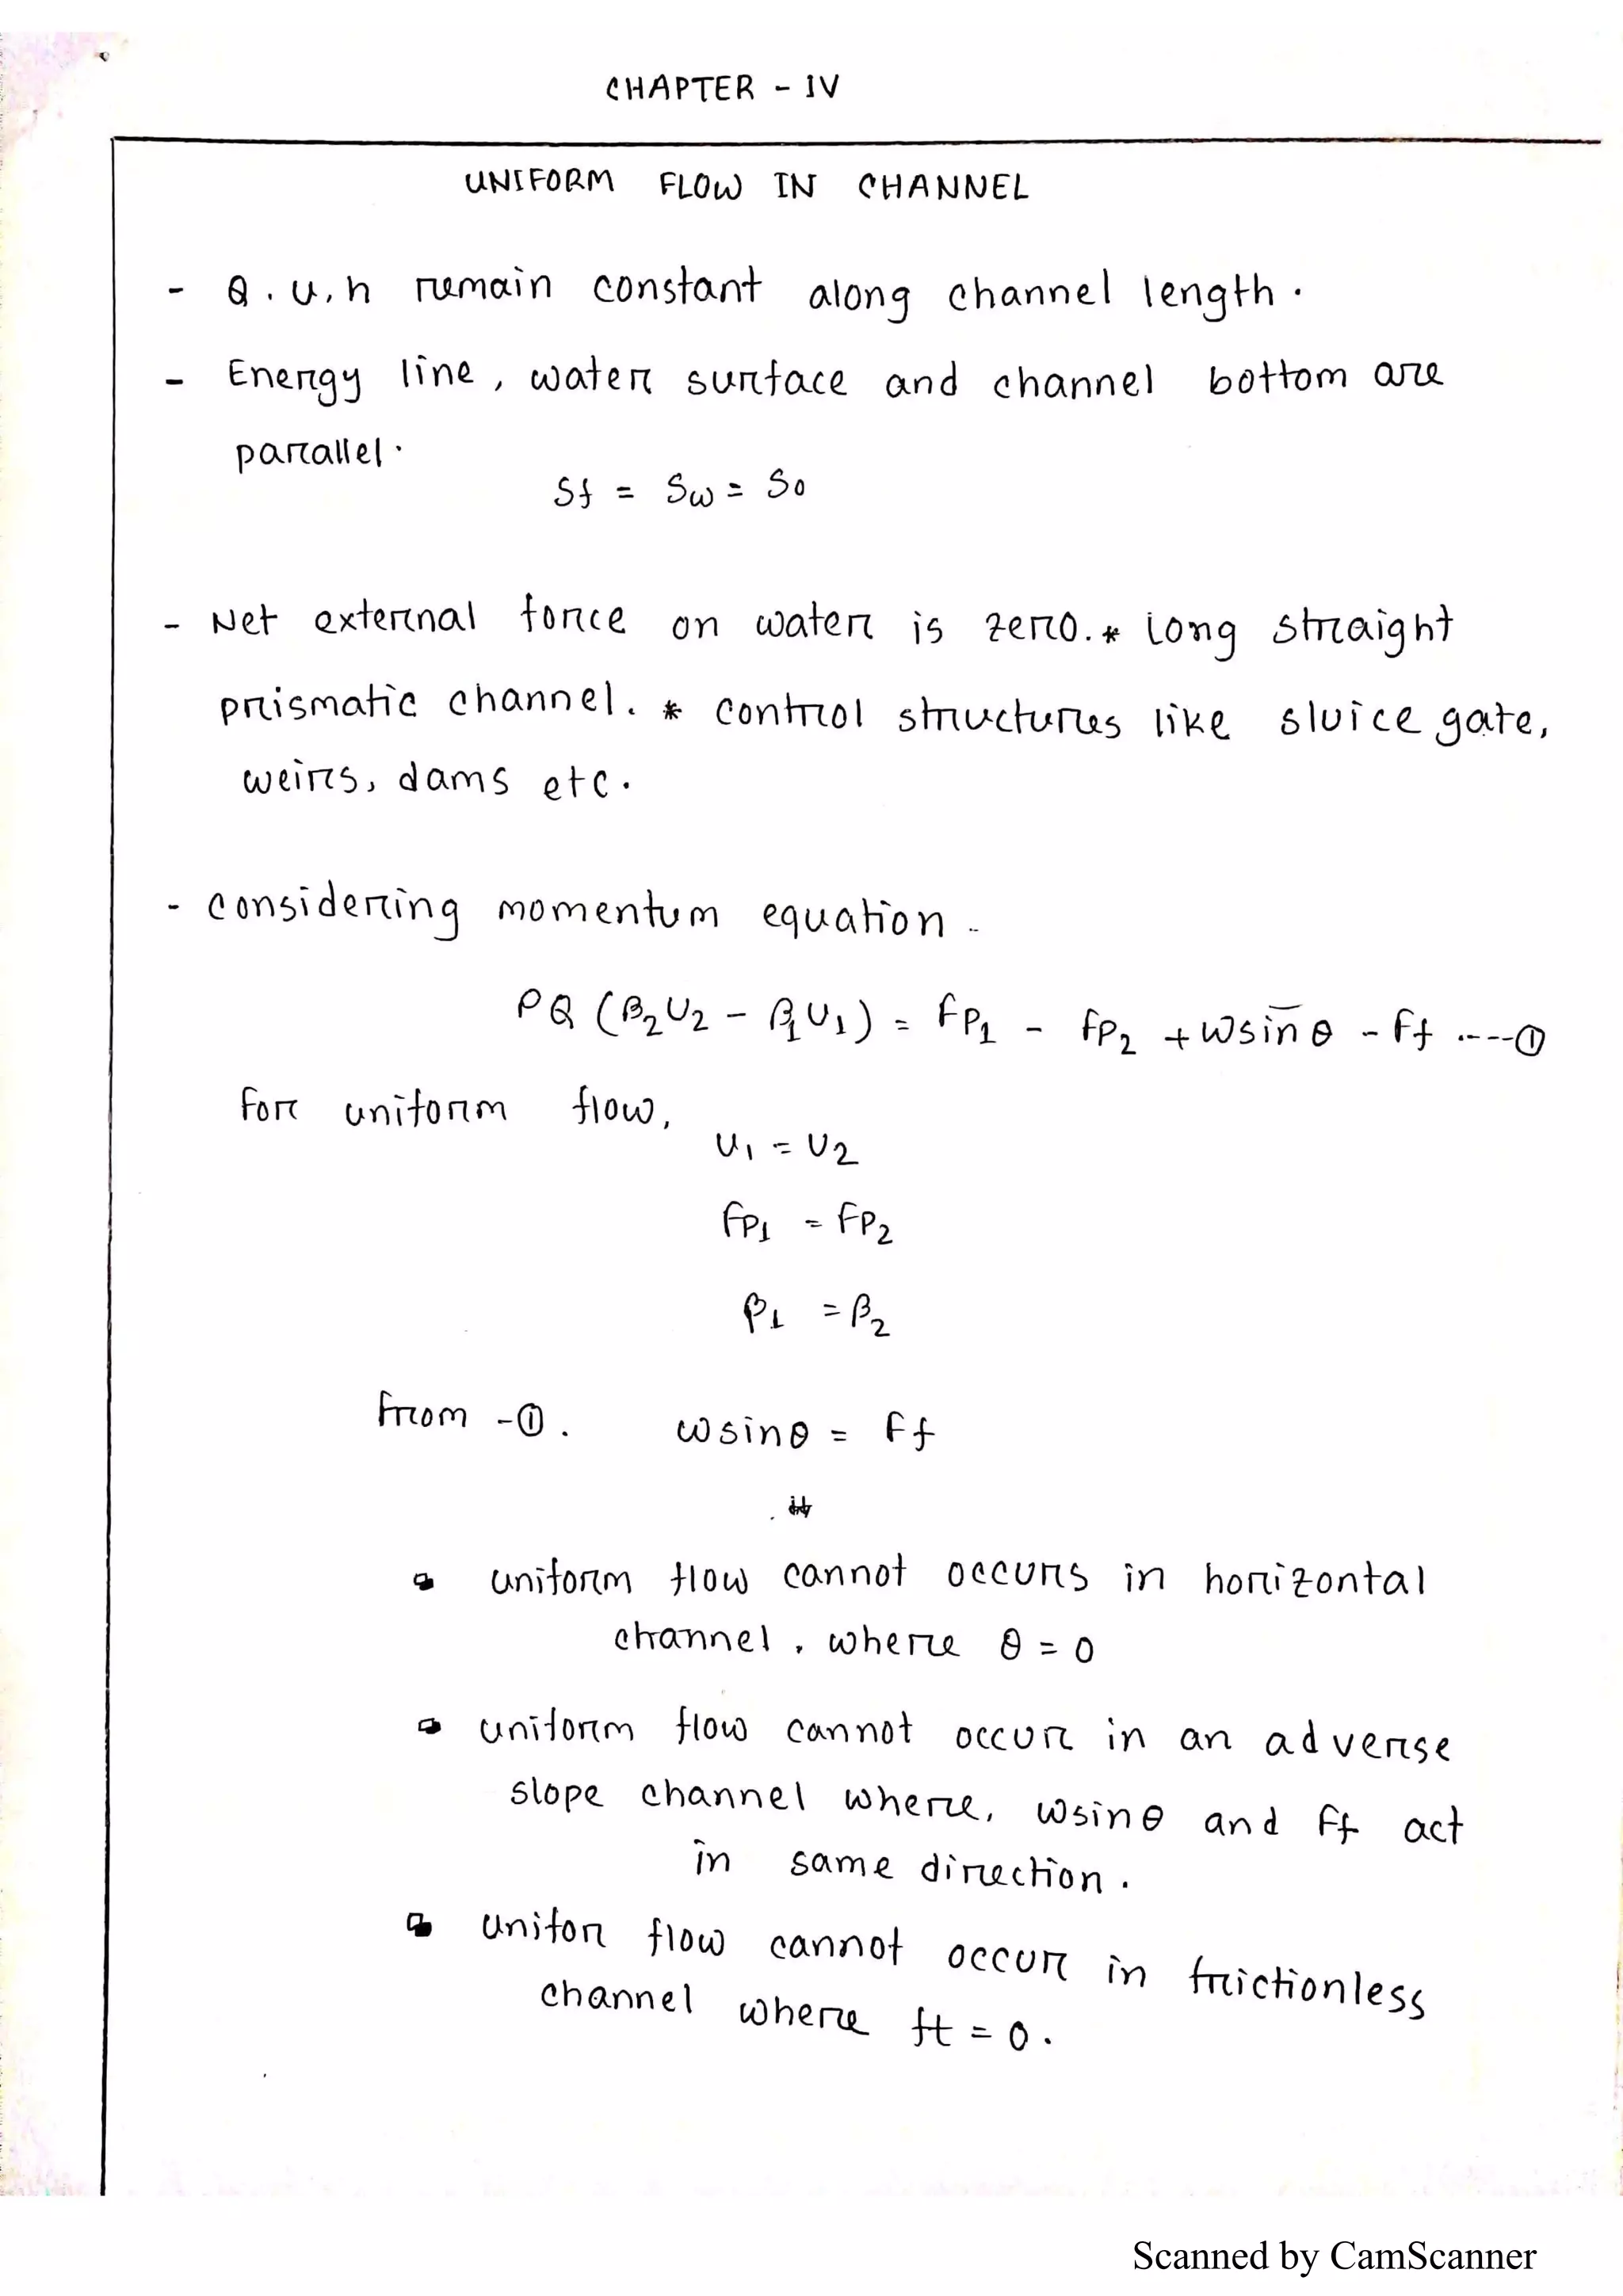 CHAPTER - IV
UNIFORM FLOW IN CHANNEL
- Q. u, h remain constant along channel length.
- Energy line, water surface and channel bottom are
parallel.
Sf = Sw = So
- Net external force on water is zero. * Long straight
prismatic channel. * control structures like sluice gate,
weirs, dams etc.
- considering momentum equation -
ρQ (β₂U₂ - β₁U₁) = FP₁ - FP₂ + Wsinθ - Ff ----①
For uniform flow,
U₁ = U₂
FP₁ = FP₂
β₁ = β₂
From -①. Wsinθ = Ff
uniform flow cannot occurs in horizontal
channel, where θ = 0
uniform flow cannot occur in an adverse
slope channel where, Wsinθ and Ff act
in same direction.
unifor flow cannot occur in frictionless
channel where ff = 0.
Scanned by CamScanner